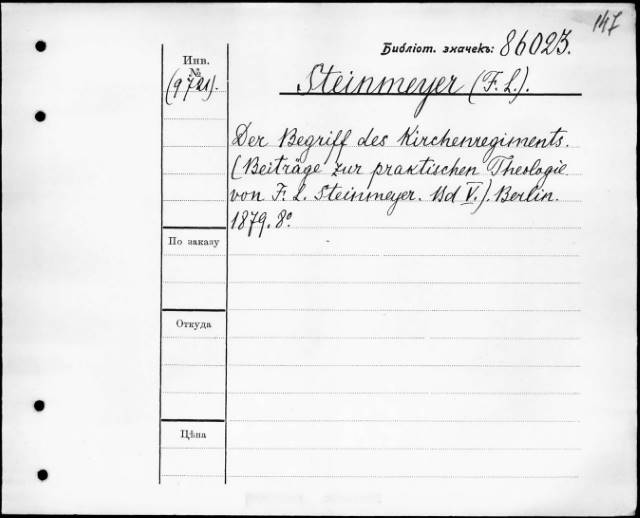 147
Библіот. значекъ: 86023.
Инв.
№
(9721).
Steinmeyer (F. L.).
Der Begriff des Kirchenregiments.
(Beiträge zur praktischen Theologie
von F. L. Steinmeyer. Bd V.). Berlin.
1879. 8º.
По заказу
Откуда
Цѣна